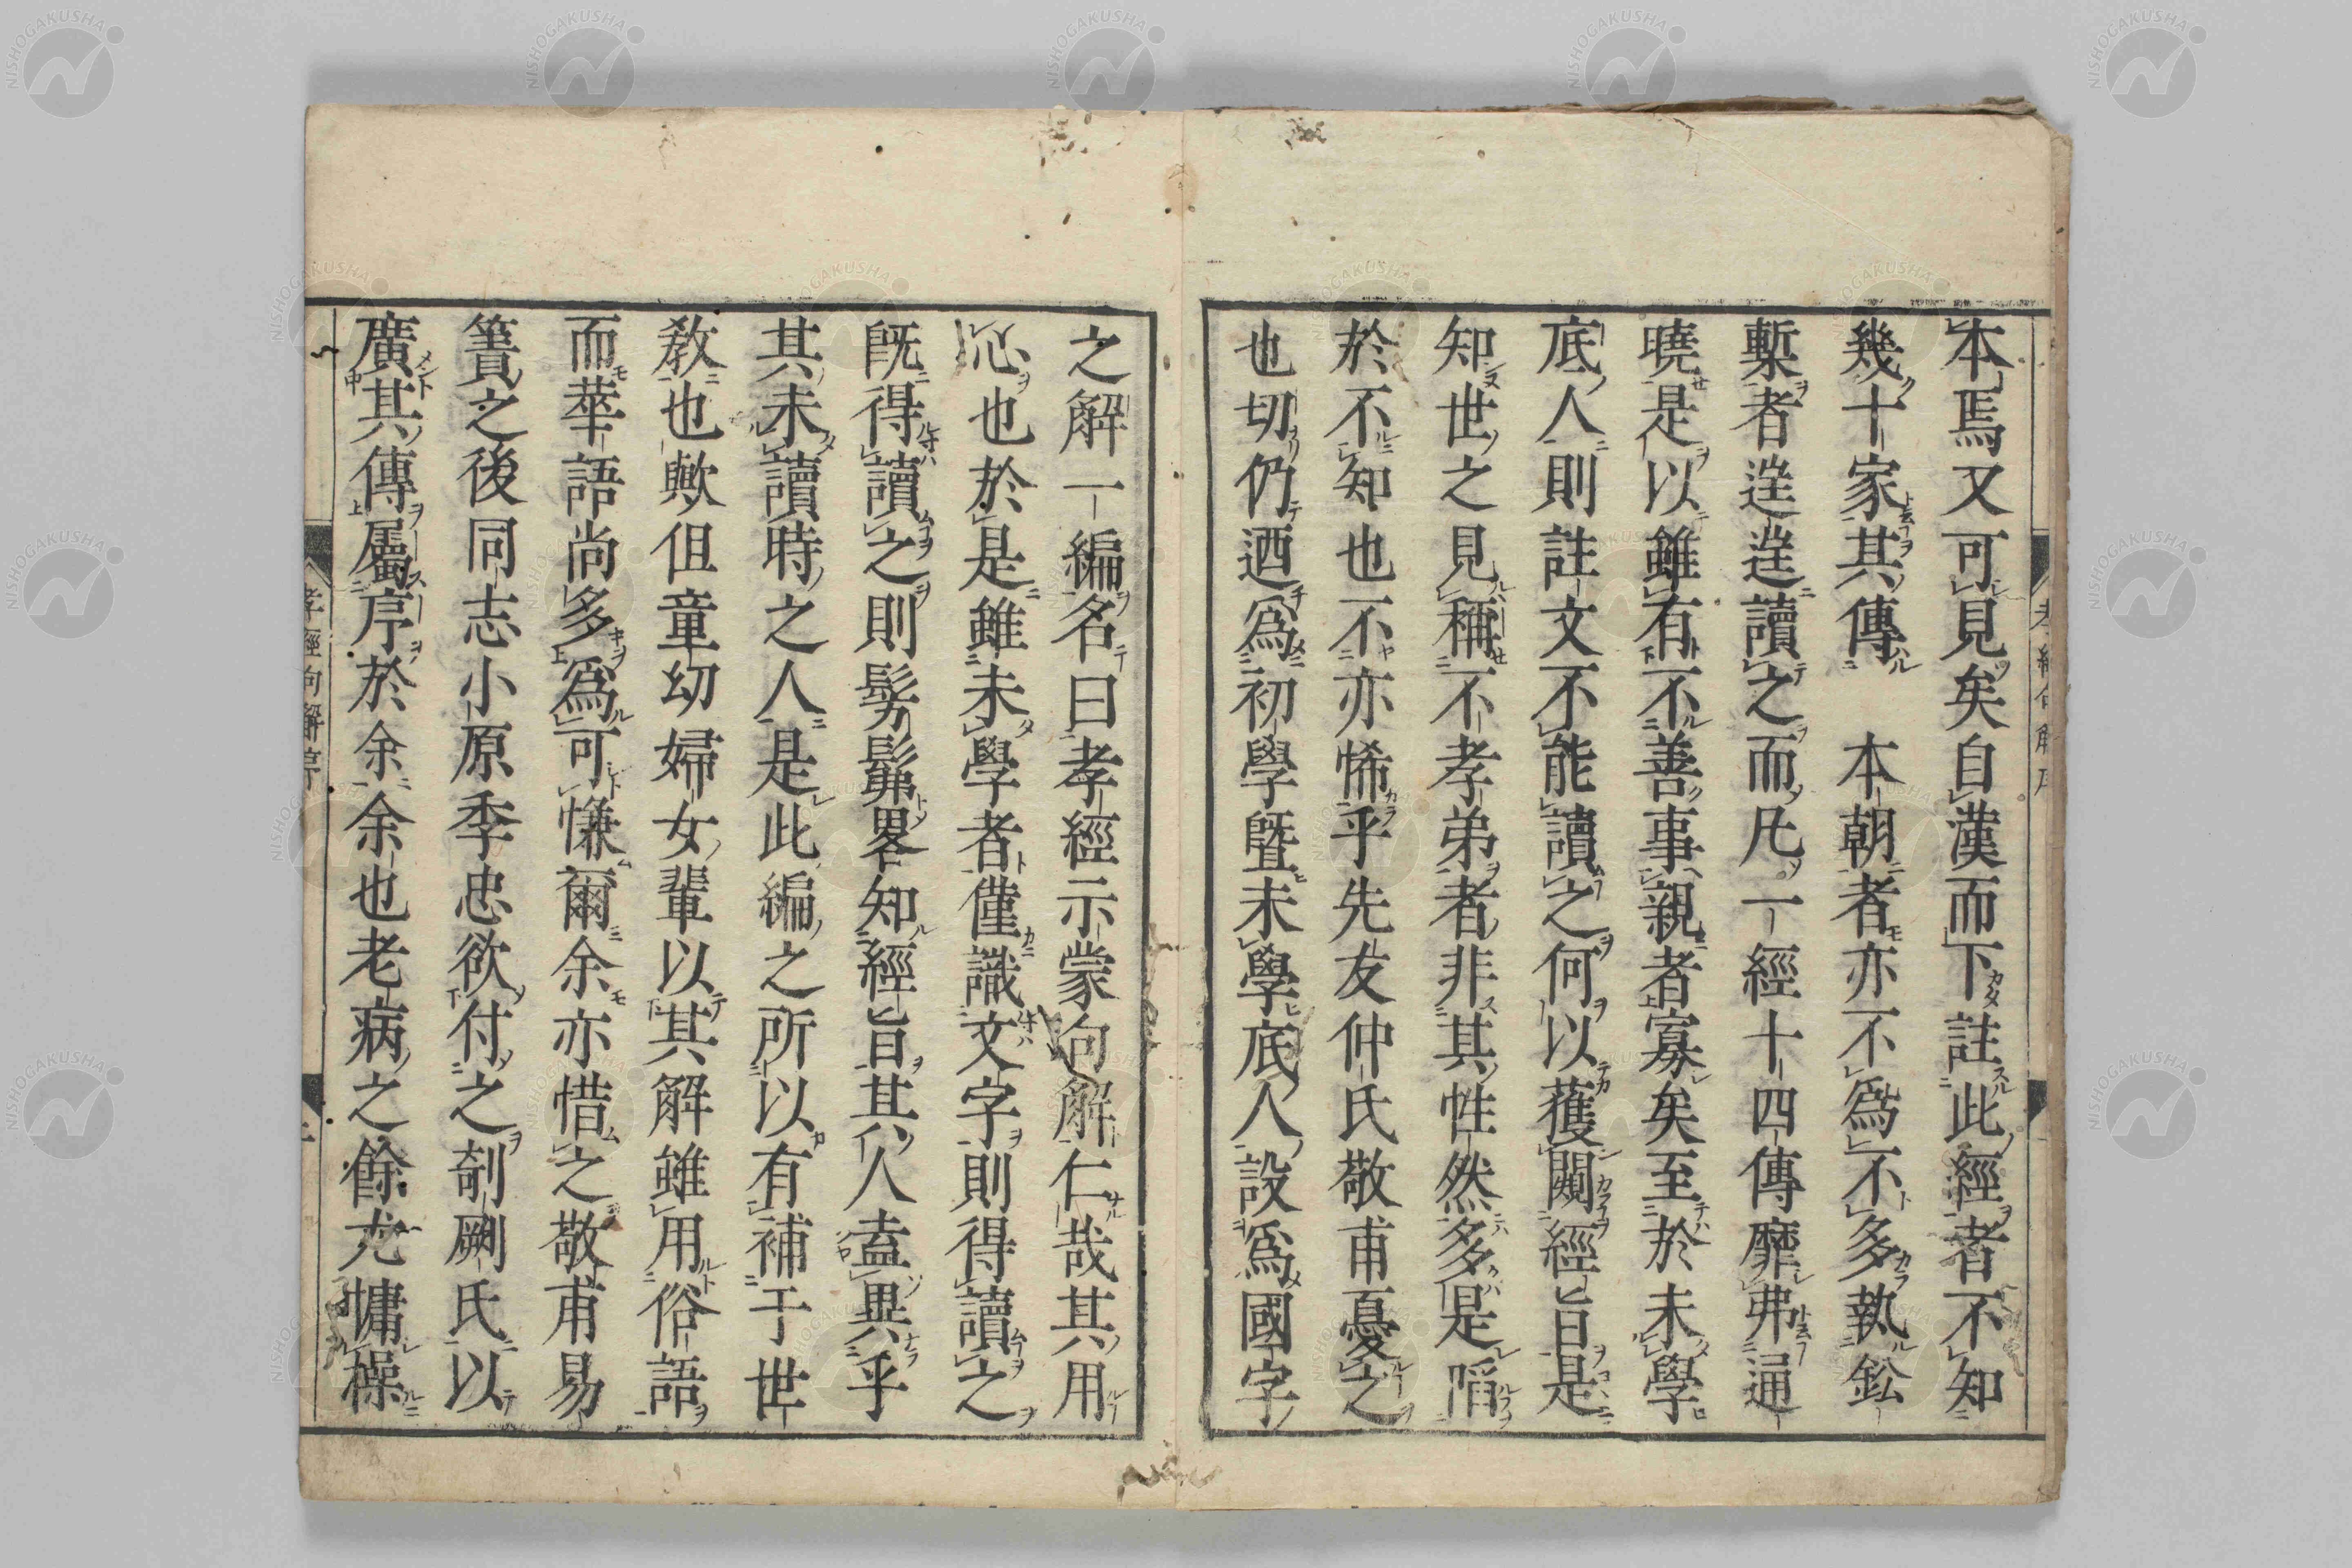 本焉又可見矣自漢而下註此經者不知
幾十家其傳　本朝者亦不爲不多執鈆
槧者逞逞讀之而凡一經十四傳靡弗通
曉是以雖有不善事親者寡矣至於未學
底人則註文不能讀之何以獲闚經旨是
知世之見稱不孝弟者非其性然多是謟
於不知也不亦悕乎先友仲氏敬甫憂之
也切仍迺爲初學曁未學底人設爲國字
之解一編名曰孝經示蒙句解仁哉其用
心也於是雖未學者僅識文字則得讀之
既得讀之則髣髴畧知經旨其人盍異乎
其未讀時之人是此編之所以有補于世
教也歟但童幼婦女輩以其解雖用俗語
而華語尚多爲可慊爾余亦惜之敬甫易
簀之後同志小原季忠欲付之剞劂氏以
廣其傳屬序於余余也老病之餘尤慵操
孝經句解序